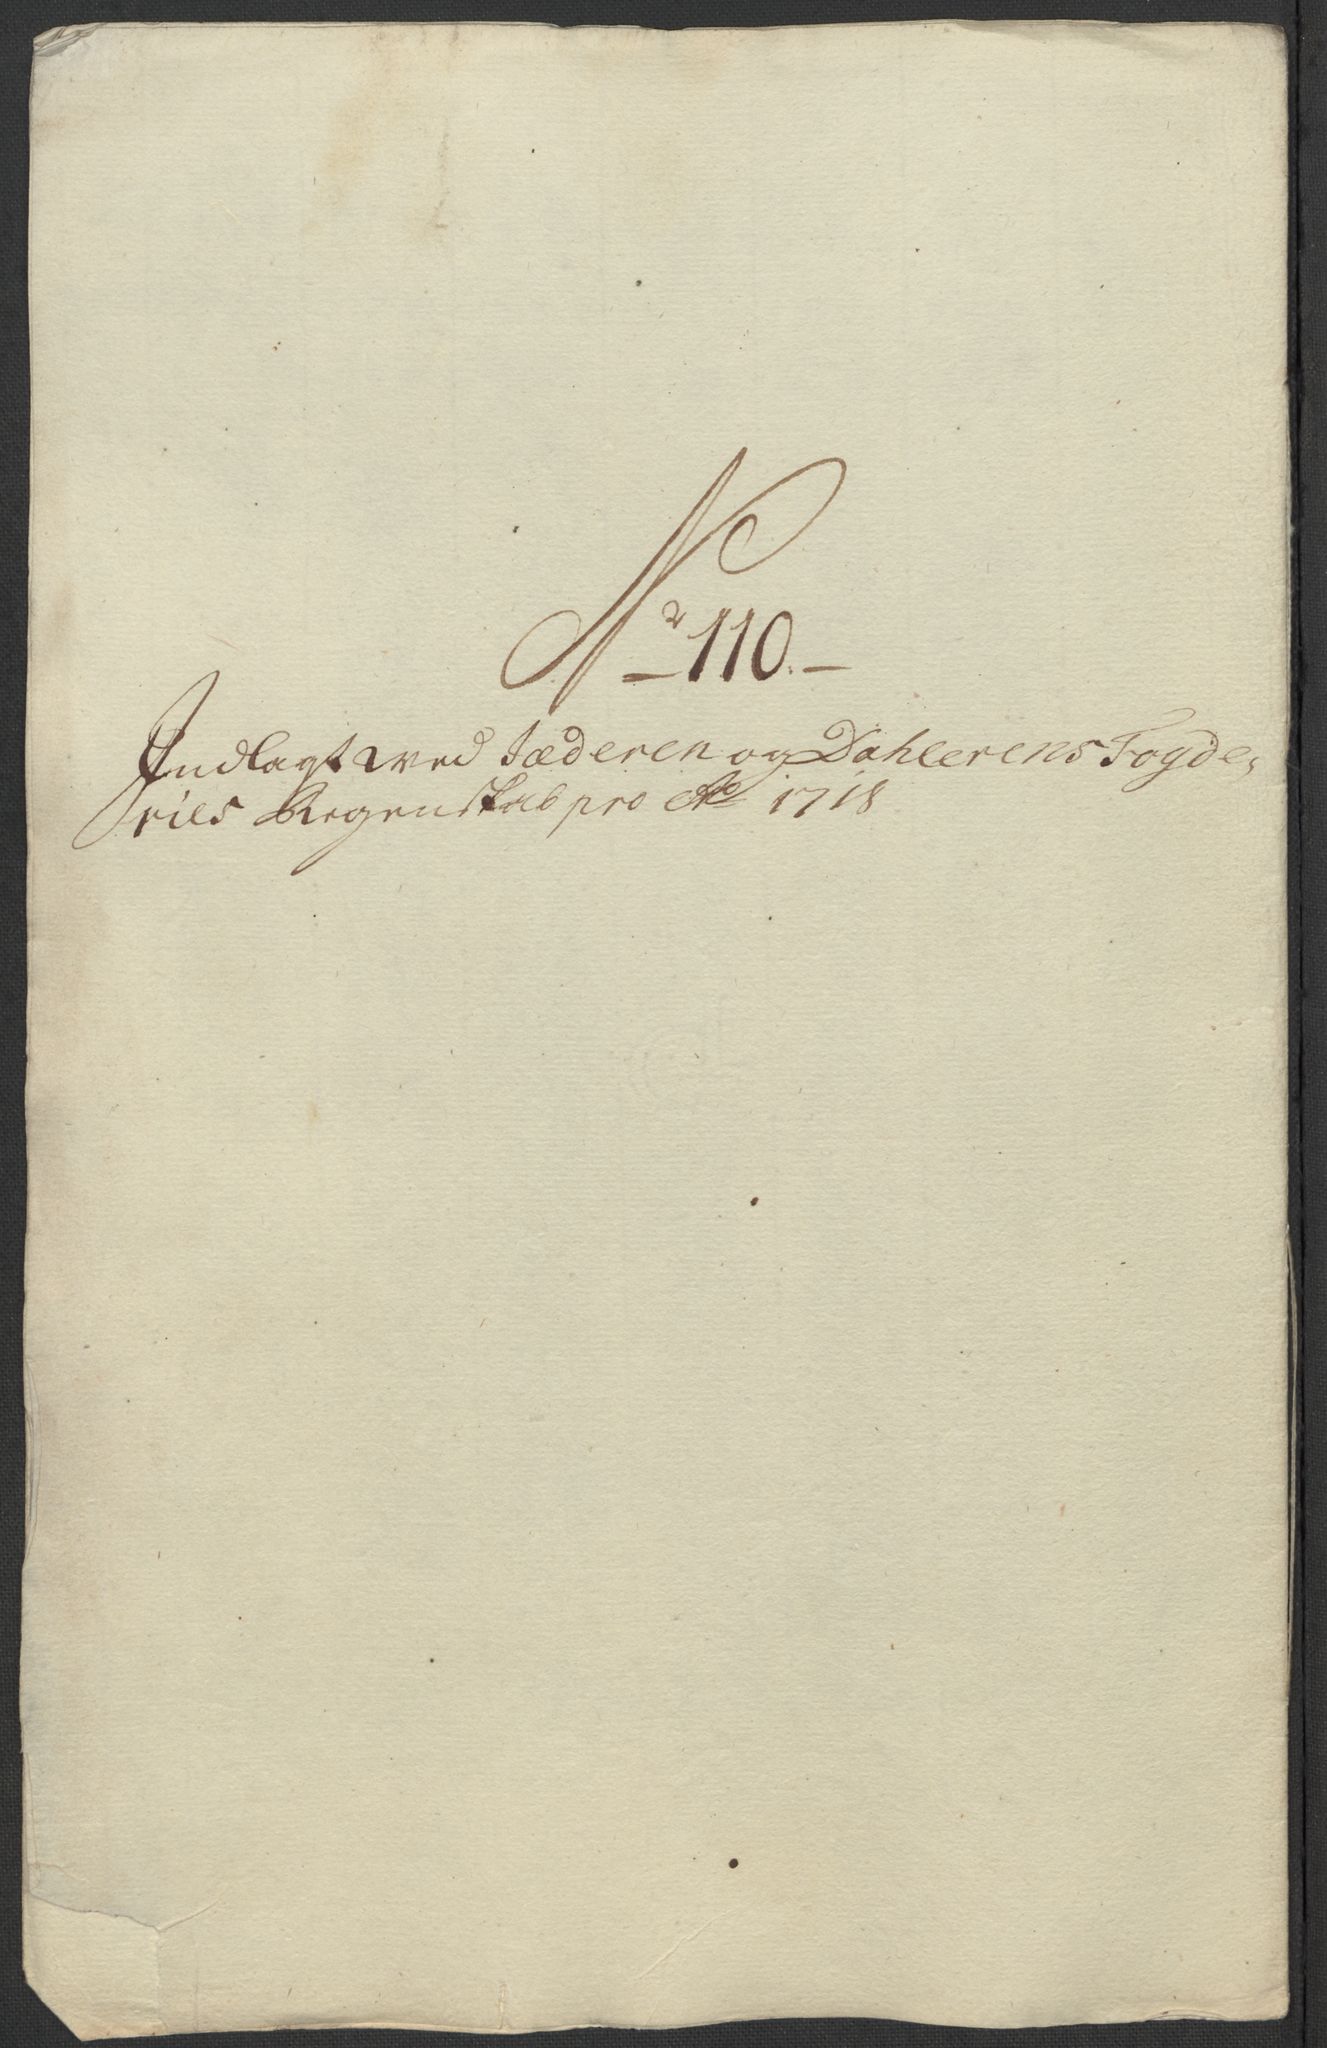 Nr 110.
Indlagt wed Jæderen og Dahlerens Fogde,
ries Regenskab pro Ao 1718